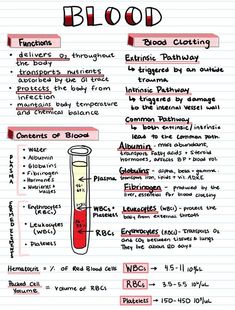 BLOOD
Functions
• delivers O₂ throughout
the body
• transports nutrients
absorbed by the GI tract
• protects the body from
infection
• maintains body temperature
and chemical balance
Blood Clotting
Extrinsic Pathway
↳ triggered by an outside
trauma
Intrinsic Pathway
↳ triggered by damage to
the internal vessel wall
Common Pathway
↳ both extrinsic/intrinsic
lead to the common path
Contents of Blood
PLASMA
• Water
• Albumin
• Globulins
• Fibrinogen
• Hormones
• Nutrients +
Wastes
FORMED ELEMENTS
• Erythrocytes
(RBCs)
• Leukocytes
(WBCs)
• Platelets
55%
Plasma
WBCs
Platelets
45%
RBCs
Albumin - most abundant,
transports fatty acids + steroid
hormones, affects BP + blood vol
Globulins - alpha, beta + gamma,
transport iron, lipids +
Fibrinogen - produced by the
liver, essential for blood clotting
Leukocytes (WBCs) - protect the
body from external threats
Erythrocytes (RBCs) - Transports O₂
and CO₂ between tissues + lungs
they live about 120 days
Hematocrit = % of Red Blood Cells
Packed Cell
Volume = Volume of RBCs
WBCs → 4.5-11
RBCs → 3.5-5.5
Platelets → 150-450